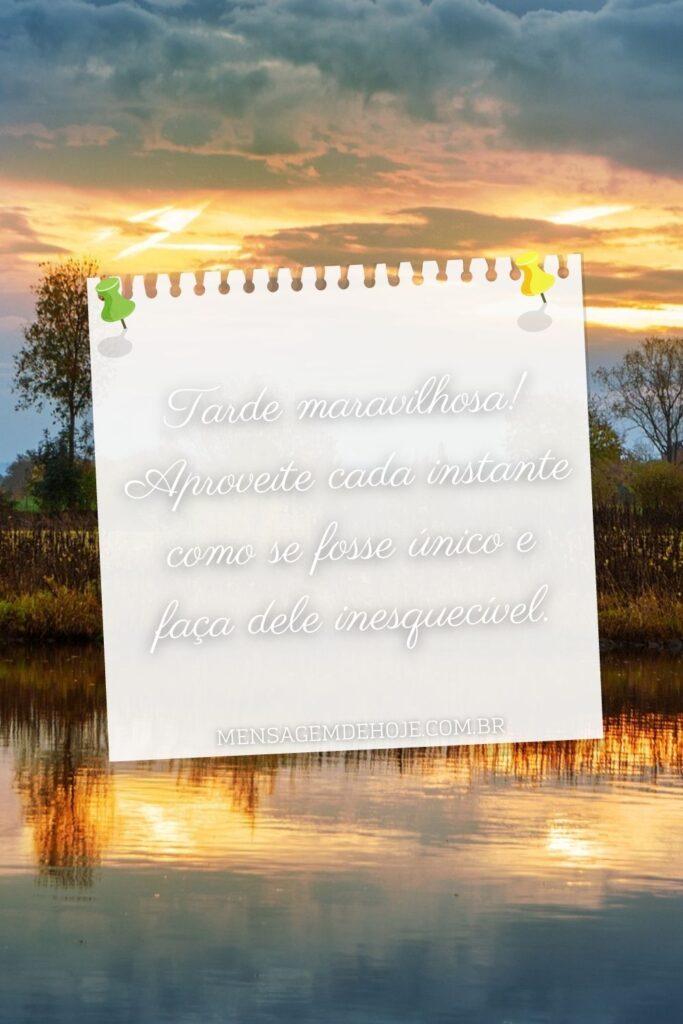 Tarde maravilhosa!
Aproveite cada instante
como se fosse único e
faça dele inesquecível.
MENSAGEMDEHOJE.COM.BR